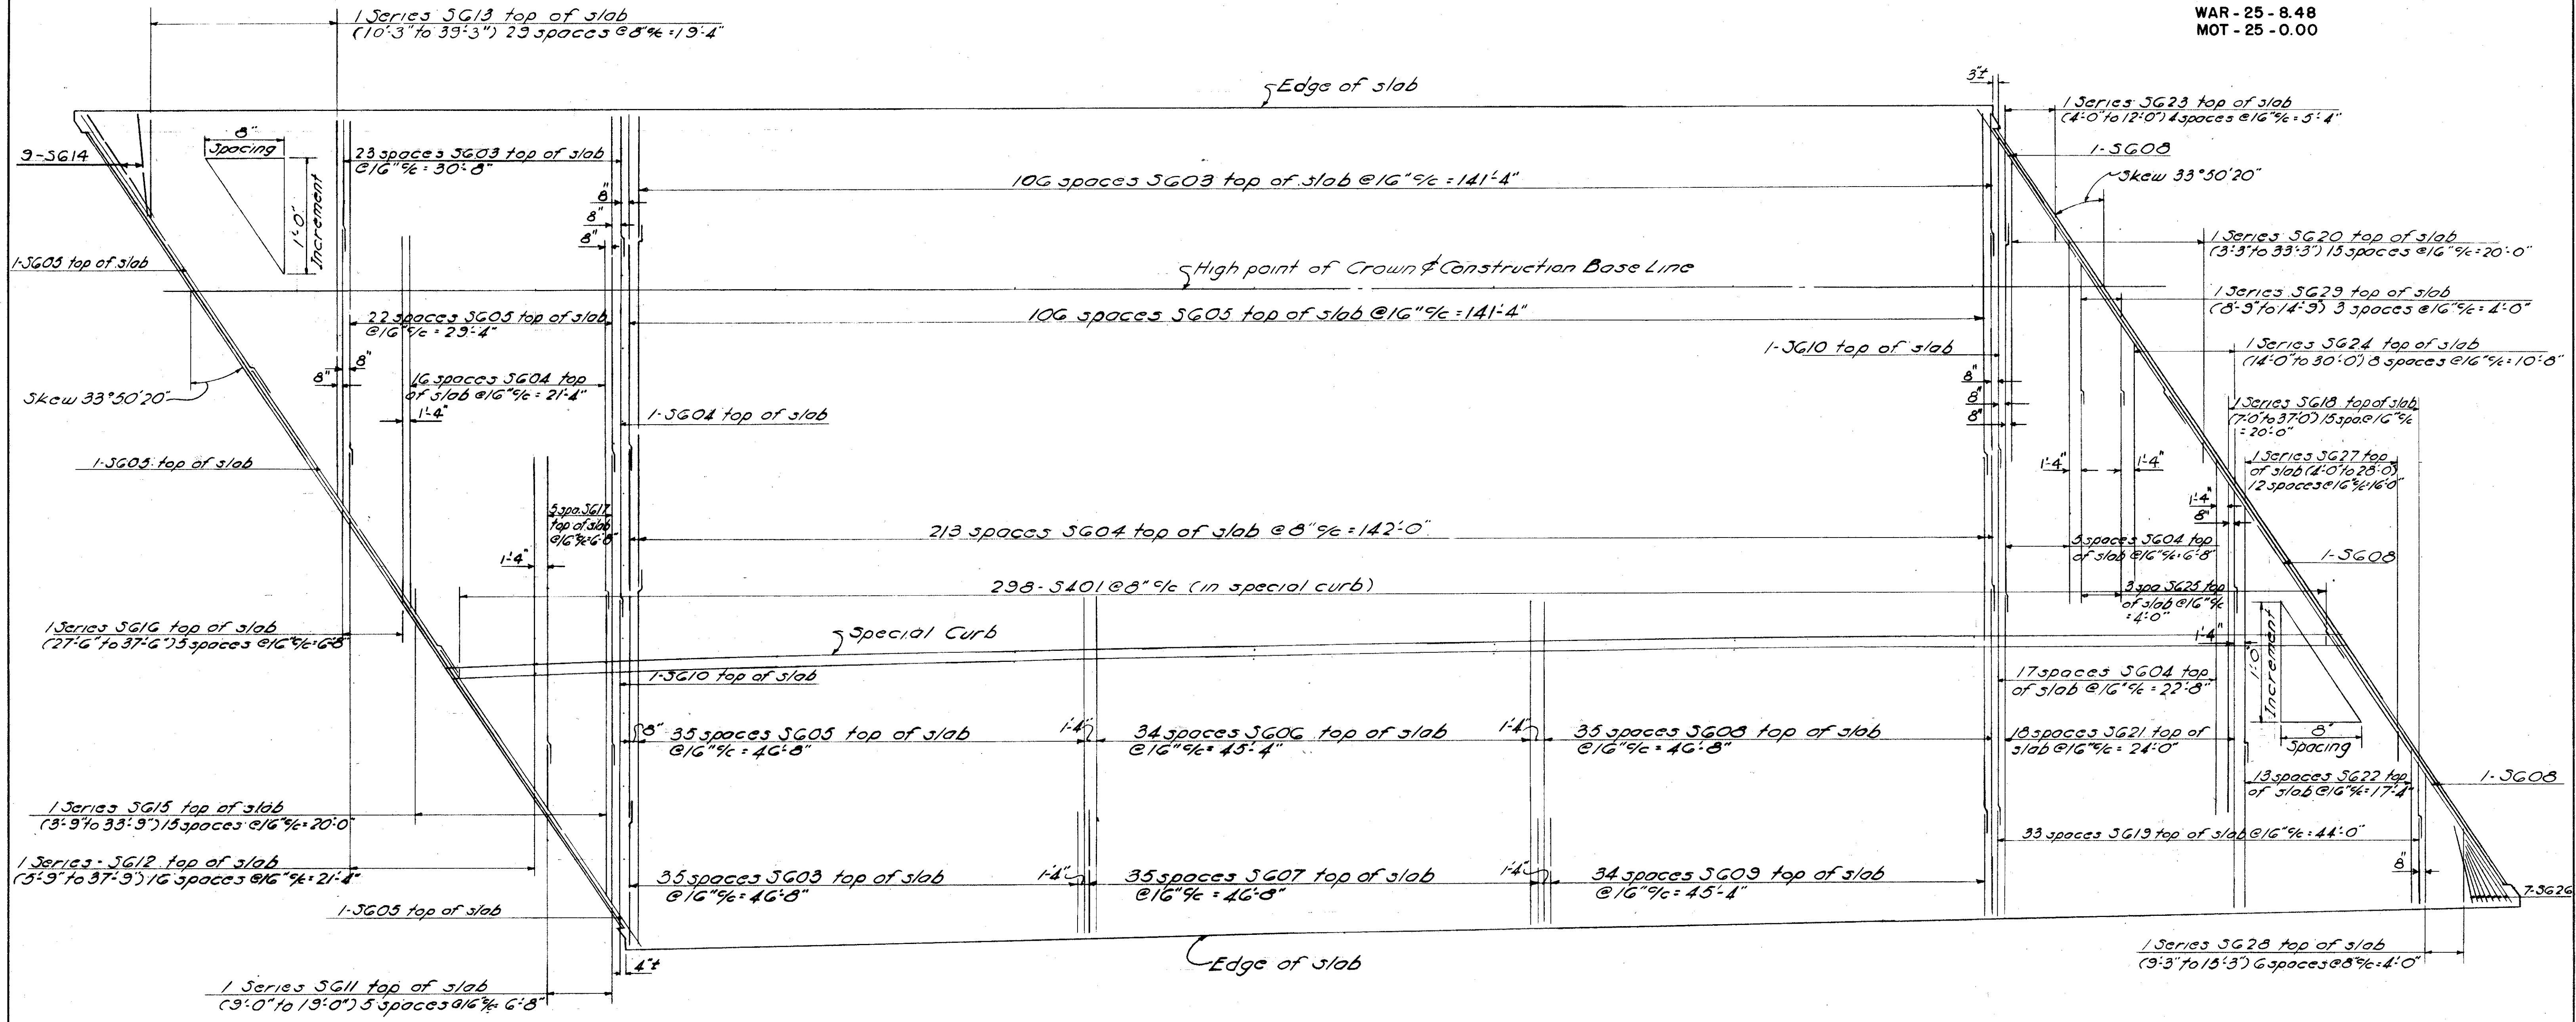 WAR - 25 - 8.48
MOT - 25 - 0.00
1 Series SG13 top of slab
(10'-3" to 39'-3") 29 spaces @ 8" c/c = 19'-4"
Edge of slab
3"±
1 Series SG23 top of slab
(4'-0" to 12'-0") 4 spaces @ 16" c/c = 5'-4"
9-SG14
8"
Spacing
1'-0"
Increment
23 spaces SG03 top of slab
@ 16" c/c = 30'-8"
106 spaces SG03 top of slab @ 16" c/c = 141'-4"
1-SG08
Skew 33°50'20"
8"
8"
8"
1-SG05 top of slab
High point of Crown & Construction Base Line
1 Series SG20 top of slab
(3'-3" to 33'-3") 15 spaces @ 16" c/c = 20'-0"
22 spaces SG05 top of slab
@ 16" c/c = 29'-4"
106 spaces SG05 top of slab @ 16" c/c = 141'-4"
1 Series SG29 top of slab
(8'-9" to 14'-9") 3 spaces @ 16" c/c = 4'-0"
1-SG10 top of slab
1 Series SG24 top of slab
(14'-0" to 30'-0") 8 spaces @ 16" c/c = 10'-8"
8"
8"
16 spaces SG04 top
of slab @ 16" c/c = 21'-4"
1'-4"
Skew 33°50'20"
1-SG04 top of slab
8"
8"
8"
1 Series SG18 top of slab
(7'-0" to 37'-0") 15 spa @ 16" c/c
= 20'-0"
1-SG05 top of slab
1'-4"
1'-4"
1 Series SG27 top
of slab (4'-0" to 28'-0")
12 spaces @ 16" c/c = 16'-0"
5 spa. SG17
top of slab
@ 16" c/c = 6'-8"
1'-4"
213 spaces SG04 top of slab @ 8" c/c = 142'-0"
1'-4"
8"
5 spaces SG04 top
of slab @ 16" c/c = 6'-8"
1-SG08
298 - S401 @ 8" c/c (in special curb)
3 spa SG25 top
of slab @ 16" c/c
= 4'-0"
1 Series SG16 top of slab
(27'-6" to 37'-6") 5 spaces @ 16" c/c = 6'-8"
Special Curb
1'-4"
1'-0"
Increment
8"
Spacing
1-SG10 top of slab
17 spaces SG04 top
of slab @ 16" c/c = 22'-8"
8"
35 spaces SG05 top of slab
@ 16" c/c = 46'-8"
1'-4"
34 spaces SG06 top of slab
@ 16" c/c = 45'-4"
1'-4"
35 spaces SG08 top of slab
@ 16" c/c = 46'-8"
18 spaces SG21 top of
slab @ 16" c/c = 24'-0"
13 spaces SG22 top
of slab @ 16" c/c = 17'-4"
1-SG08
1 Series SG15 top of slab
(3'-9" to 33'-9") 15 spaces @ 16" c/c = 20'-0"
33 spaces SG19 top of slab @ 16" c/c = 44'-0"
1 Series - SG12 top of slab
(5'-9" to 37'-9") 16 spaces @ 16" c/c = 21'-4"
35 spaces SG03 top of slab
@ 16" c/c = 46'-8"
1'-4"
35 spaces SG07 top of slab
@ 16" c/c = 46'-8"
1'-4"
34 spaces SG09 top of slab
@ 16" c/c = 45'-4"
8"
7-SG26
1-SG05 top of slab
4"±
Edge of slab
1 Series SG28 top of slab
(9'-3" to 15'-3") 6 spaces @ 8" c/c = 4'-0"
1 Series SG11 top of slab
(9'-0" to 19'-0") 5 spaces @ 16" c/c = 6'-8"